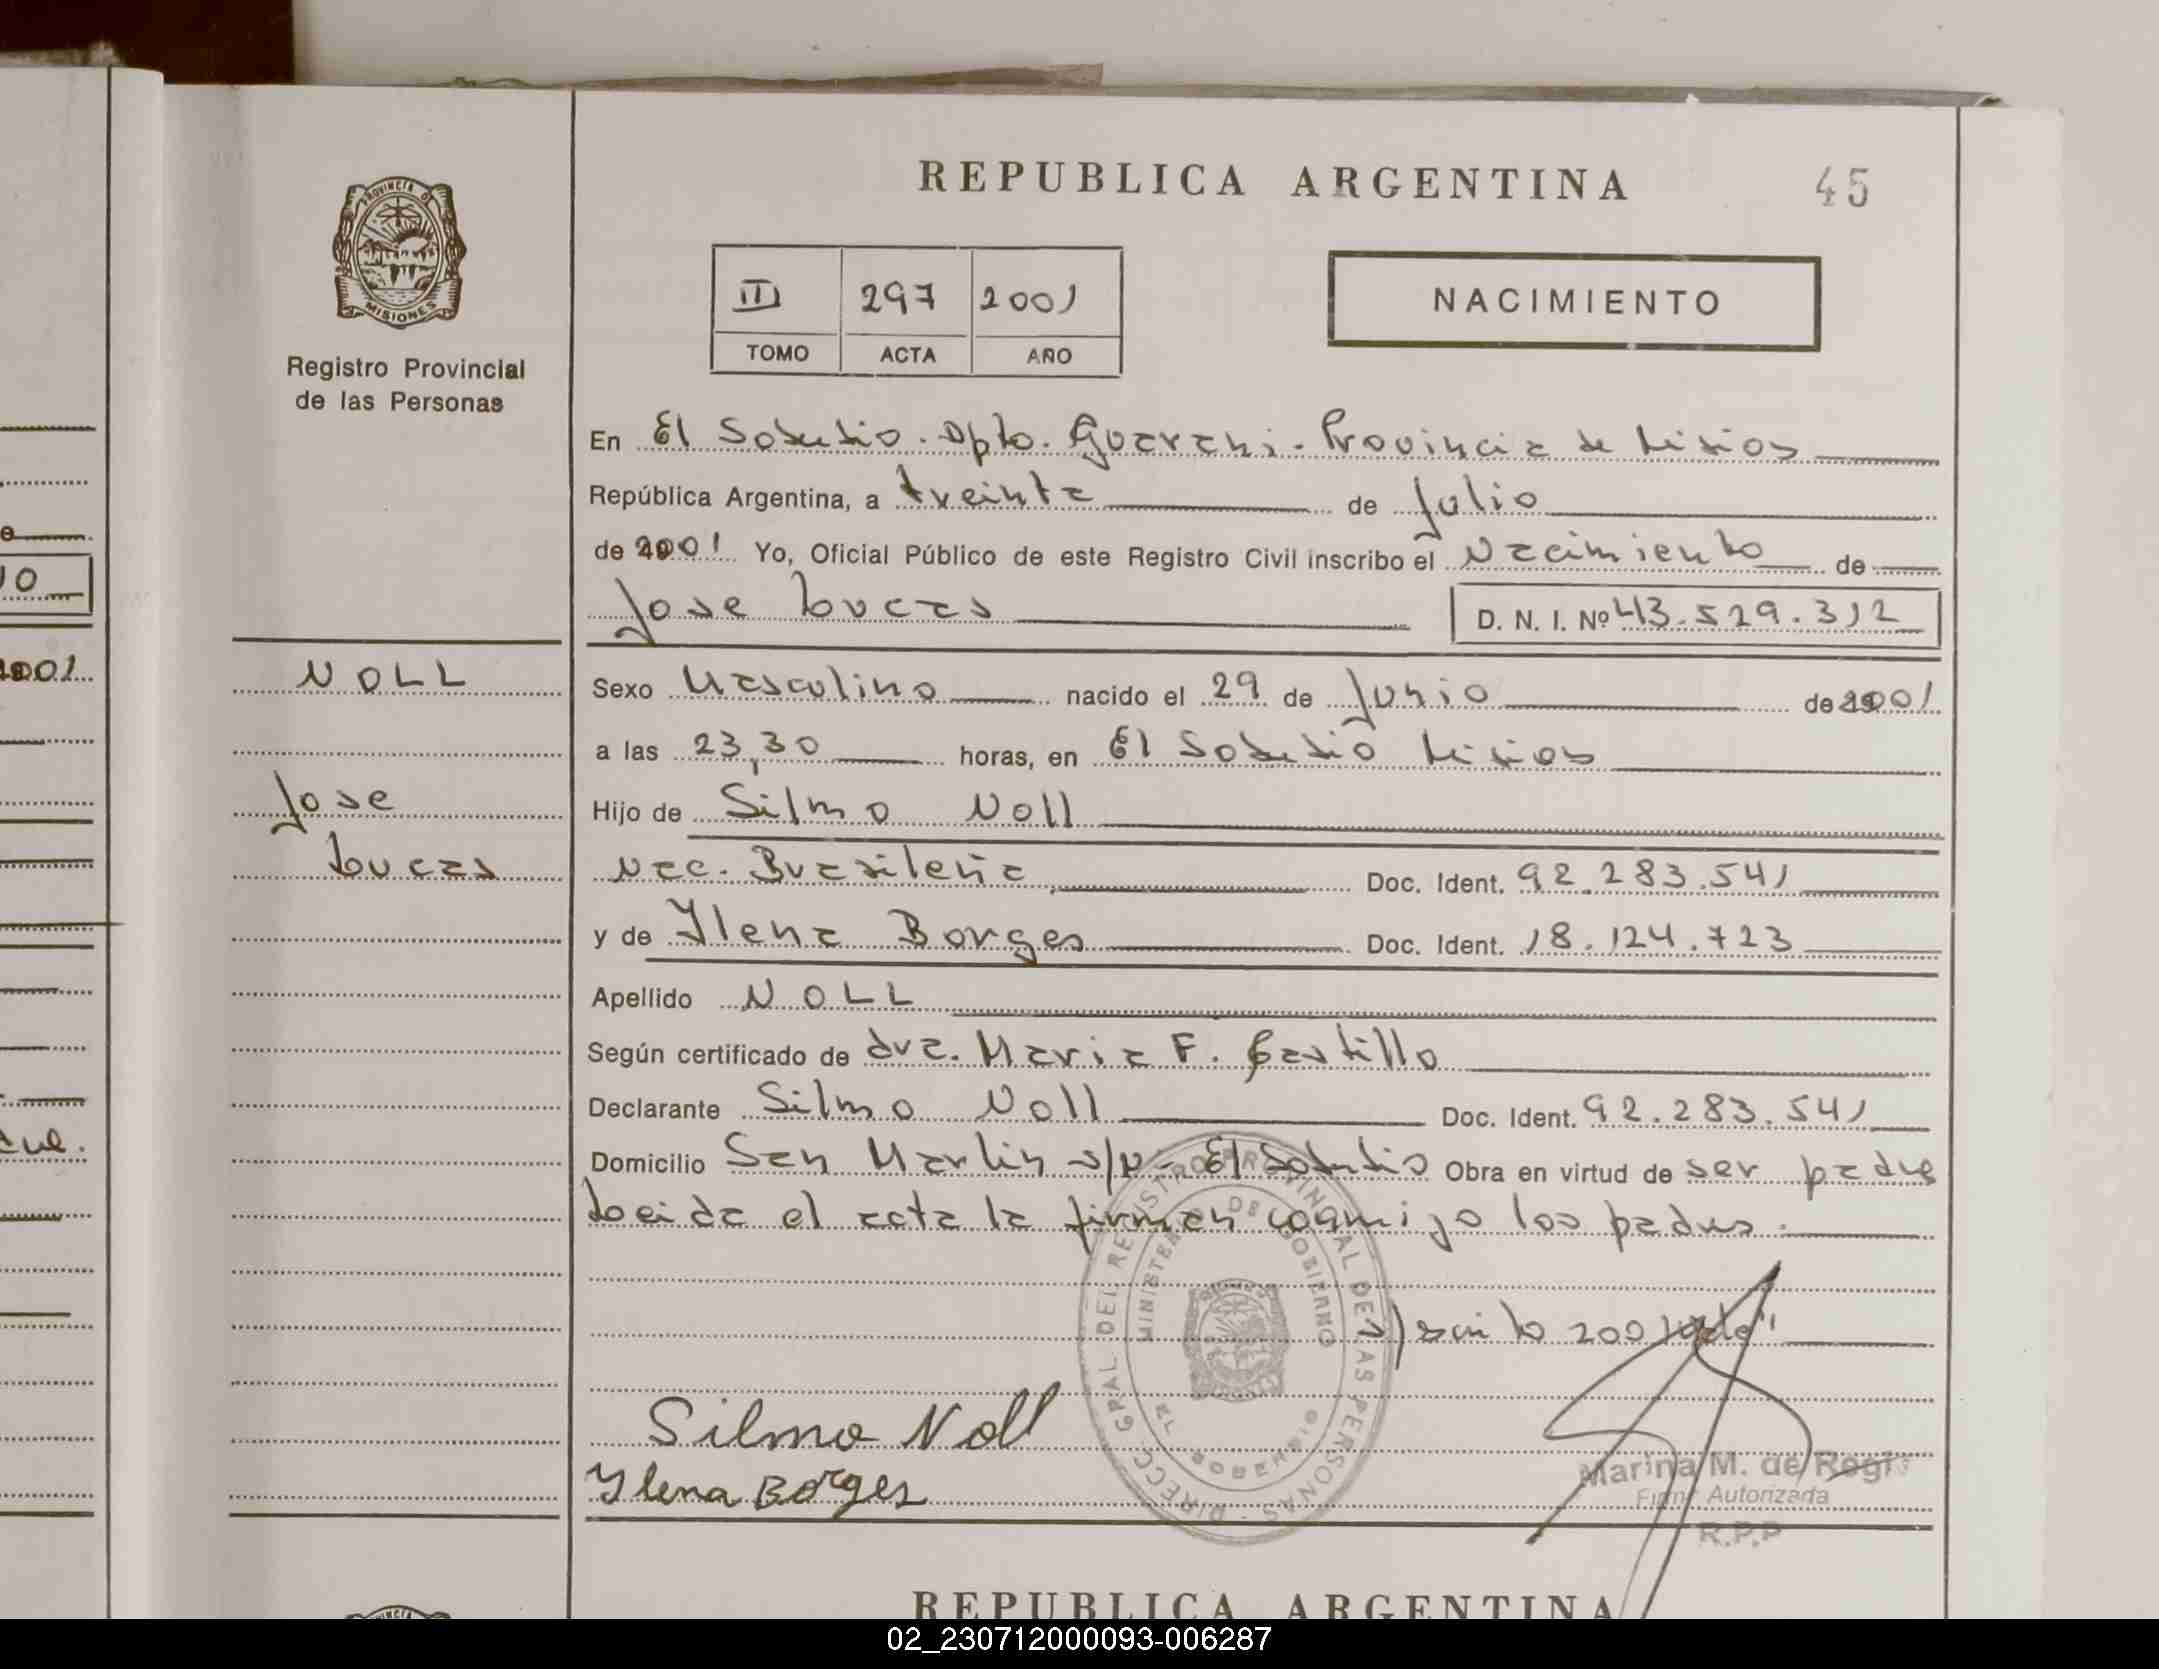 REPUBLICA ARGENTINA
45
PROVINCIA DE
MISIONES
Registro Provincial
de las Personas
II 297 2001
TOMO ACTA AÑO
NACIMIENTO
En El Soberbio. Dpto. Guarani. Provincia de Misiones
República Argentina, a treinta de Julio
de 2001 Yo, Oficial Público de este Registro Civil inscribo el Nacimiento de
Jose Lucas D. N. I. Nº 43.529.312
NOLL
Sexo Masculino nacido el 29 de Junio de 2001
a las 23,30 horas, en El Soberbio Misiones
Jose
Hijo de Silmo Noll
Lucas
Nac. Brasileña Doc. Ident. 92.283.541
y de Ilena Borges Doc. Ident. 18.124.723
Apellido NOLL
Según certificado de dra. Maria F. Castillo
Declarante Silmo Noll Doc. Ident. 92.283.541
Domicilio San Martin s/n - El Soberbio Obra en virtud de ser padre
Leida el acta la firman conmigo los padres.
DIRECC. GRAL. DEL REGISTRO PROVINCIAL DE LAS PERSONAS
MINISTERIO DE GOBIERNO
EL SOBERBIO
2001 Vale"
Silmo Noll
Ilena Borges
Marina M. de Regis
Firma Autorizada
R.P.P
REPUBLICA ARGENTINA
02_230712000093-006287